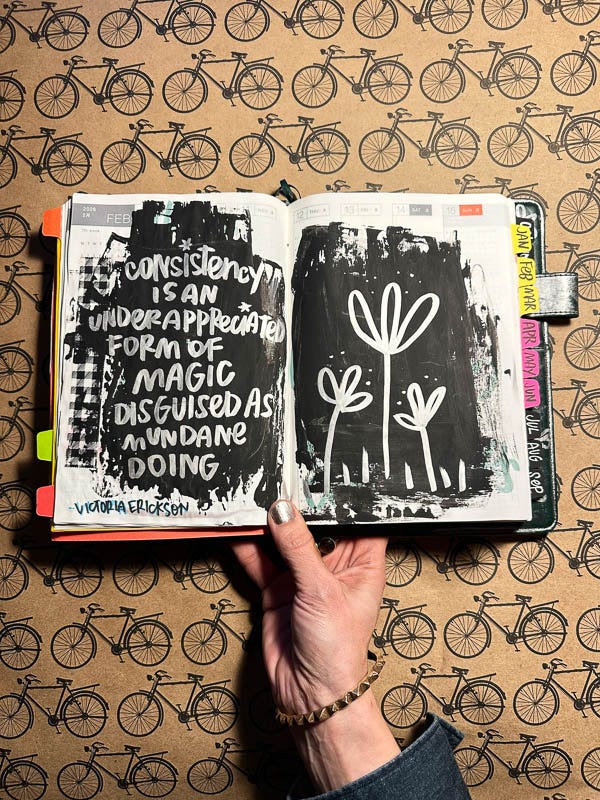 2026
FEB
12 THU
13 FRI
14 SAT
15 SUN
CONSISTENCY
IS AN
UNDERAPPRECIATED
FORM OF
MAGIC
DISGUISED AS
MUNDANE
DOING
-VICTORIA ERICKSON
JAN FEB MAR
APR MAY JUN
JUL AUG SEP